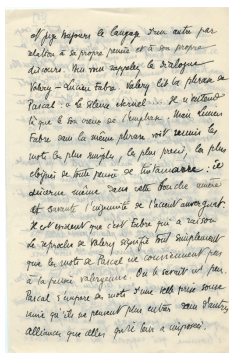 et juge toujours le langage d'un autre par
relation à sa propre pensée et à son propre
discours. Vous vous rappelez le dialogue
Valéry – Lucien Fabre. Valéry lit la phrase de
Pascal : « Le silence éternel... » Il n'entend
là que le son creux de l'emphase. Mais Lucien
Fabre dans la même phrase voit réunis les
mots les plus simples, les plus précis, les plus
éloignés de tout penser de : Il
discerne même dans cette bouche amère
et savante l'ingénuité de l'accent auvergnat.
Il est évident que c'est Fabre qui a raison
Le reproche de Valéry signifie tout simplement
que les mots de Pascal ne conviennent pas
à la pensée valéryenne. On le savait un peu.
Pascal s'empare de mots d'une telle prise
qu'ils ne peuvent plus entrer dans d'autres
alliances que celles qu'il leur a imposées.